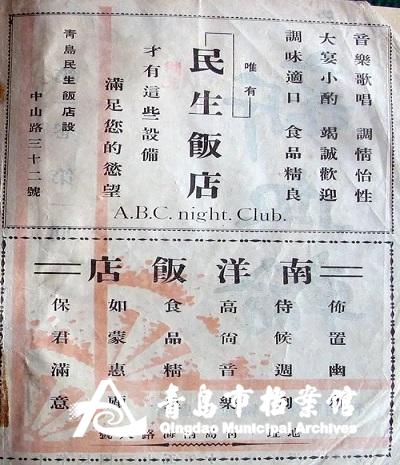 音樂歌唱 調情怡性
大宴小酌 竭誠歡迎
調味適口 食品精良
唯有
民生飯店
才有這些設備
滿足您的慾望
青島民生飯店設
中山路三十二號
A.B.C. night. Club.
南洋飯店
佈置幽
侍候週到
高尚音樂
食品精
如蒙惠顧
保君滿意
地址 青島南海路 號
青島市檔案館
Qingdao Municipal Archives